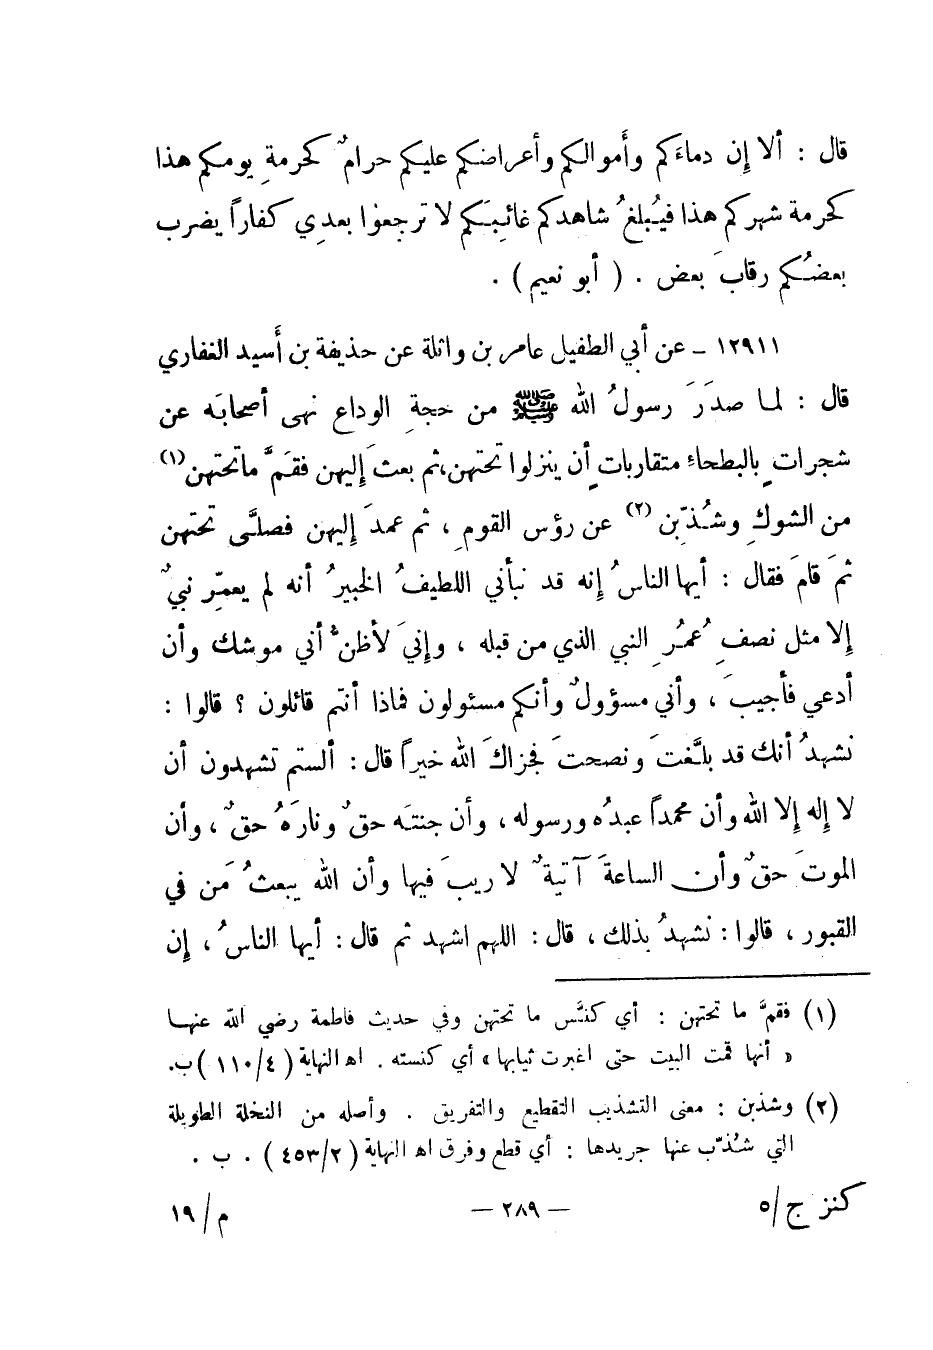 قال : ألا إن دماءَكم وأموالكم وأعراضكم عليكم حرامٌ كحرمةِ يومكم هذا
كحرمة شهركم هذا فيُبلغُ شاهدكم غائبَكم لا ترجعوا بعدِي كفاراً يضرب
بعضُكم رقابَ بعض . ( أبو نعيم ) .
١٢٩١١ ـ عن أبي الطفيل عامر بن واثلة عن حذيفة بن أَسيد الغفاري
قال : لما صدَرَ رسولُ الله ﷺ من حجةِ الوداع نهى أصحابَه عن
شجراتٍ بالبطحاءِ متقارباتٍ أن ينزلوا تحتهن،ثم بعثَ إليهن فقمَّ ماتحتهن (١)
من الشوكِ وشُذّبن (٢) عن رؤس القومِ ، ثم عمدَ إليهن فصلَّى تحتهن
ثمَ قامَ فقال : أيها الناسُ إنه قد نبأني اللطيفُ الخبيرُ أنه لم يعمِّر نبيٌ
إلا مثل نصفِ عمُرِ النبي الذي من قبله ، وإنيَ لأظنُّ أني موشك وأن
أدعي فأجيبَ ، وأني مسؤولٌ وأنكم مسئولون فماذا أنتم قائلون ؟ قالوا :
نشهدُ أنك قد بلَّغتَ ونصحتَ فجزاكَ الله خيراً قال : ألستم تشهدون أن
لا إله إلا الله وأن محمداً عبدُه ورسوله ، وأن جنتَه حقٌ ونارَهُ حقٌ ، وأن
الموتَ حقٌ وأن الساعةَ آتيةٌ لا ريبَ فيها وأن الله يبعثُ مَن في
القبور ، قالوا : نشهدُ بذلك ، قال : اللهم اشهد ثم قال : أيها الناسُ ، إن
(١) فقمَّ ما تحتهن : أي كنَّس ما تحتهن وفي حديث فاطمة رضي الله عنها
« أنها قمت البيت حتى اغبرت ثيابها » أي كنسته . اه النهاية ( ١١٠/٤ ) ب.
(٢) وشذبن : معنى التشذيب التقطيع والتفريق . وأصله من النخلة الطويلة
التي شُذّب عنها جريدها : أي قطع وفرق اه النهاية ( ٤٥٣/٢ ) . ب .
كنز ج/٥
— ٢٨٩ —
م/١٩